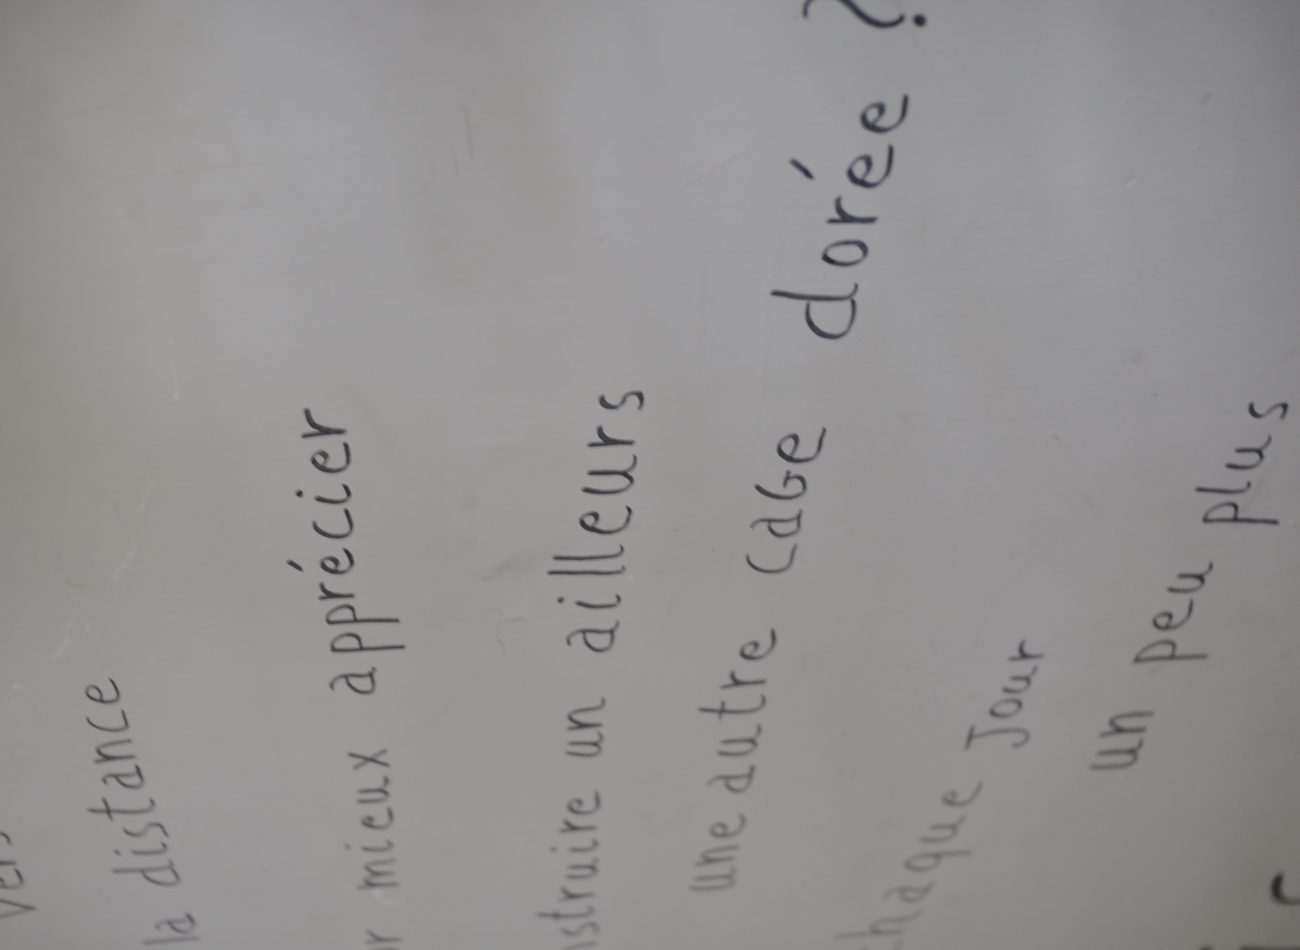 la distance
r mieux apprécier
struire un ailleurs
une autre cage dorée ?
haque Jour
un peu plus